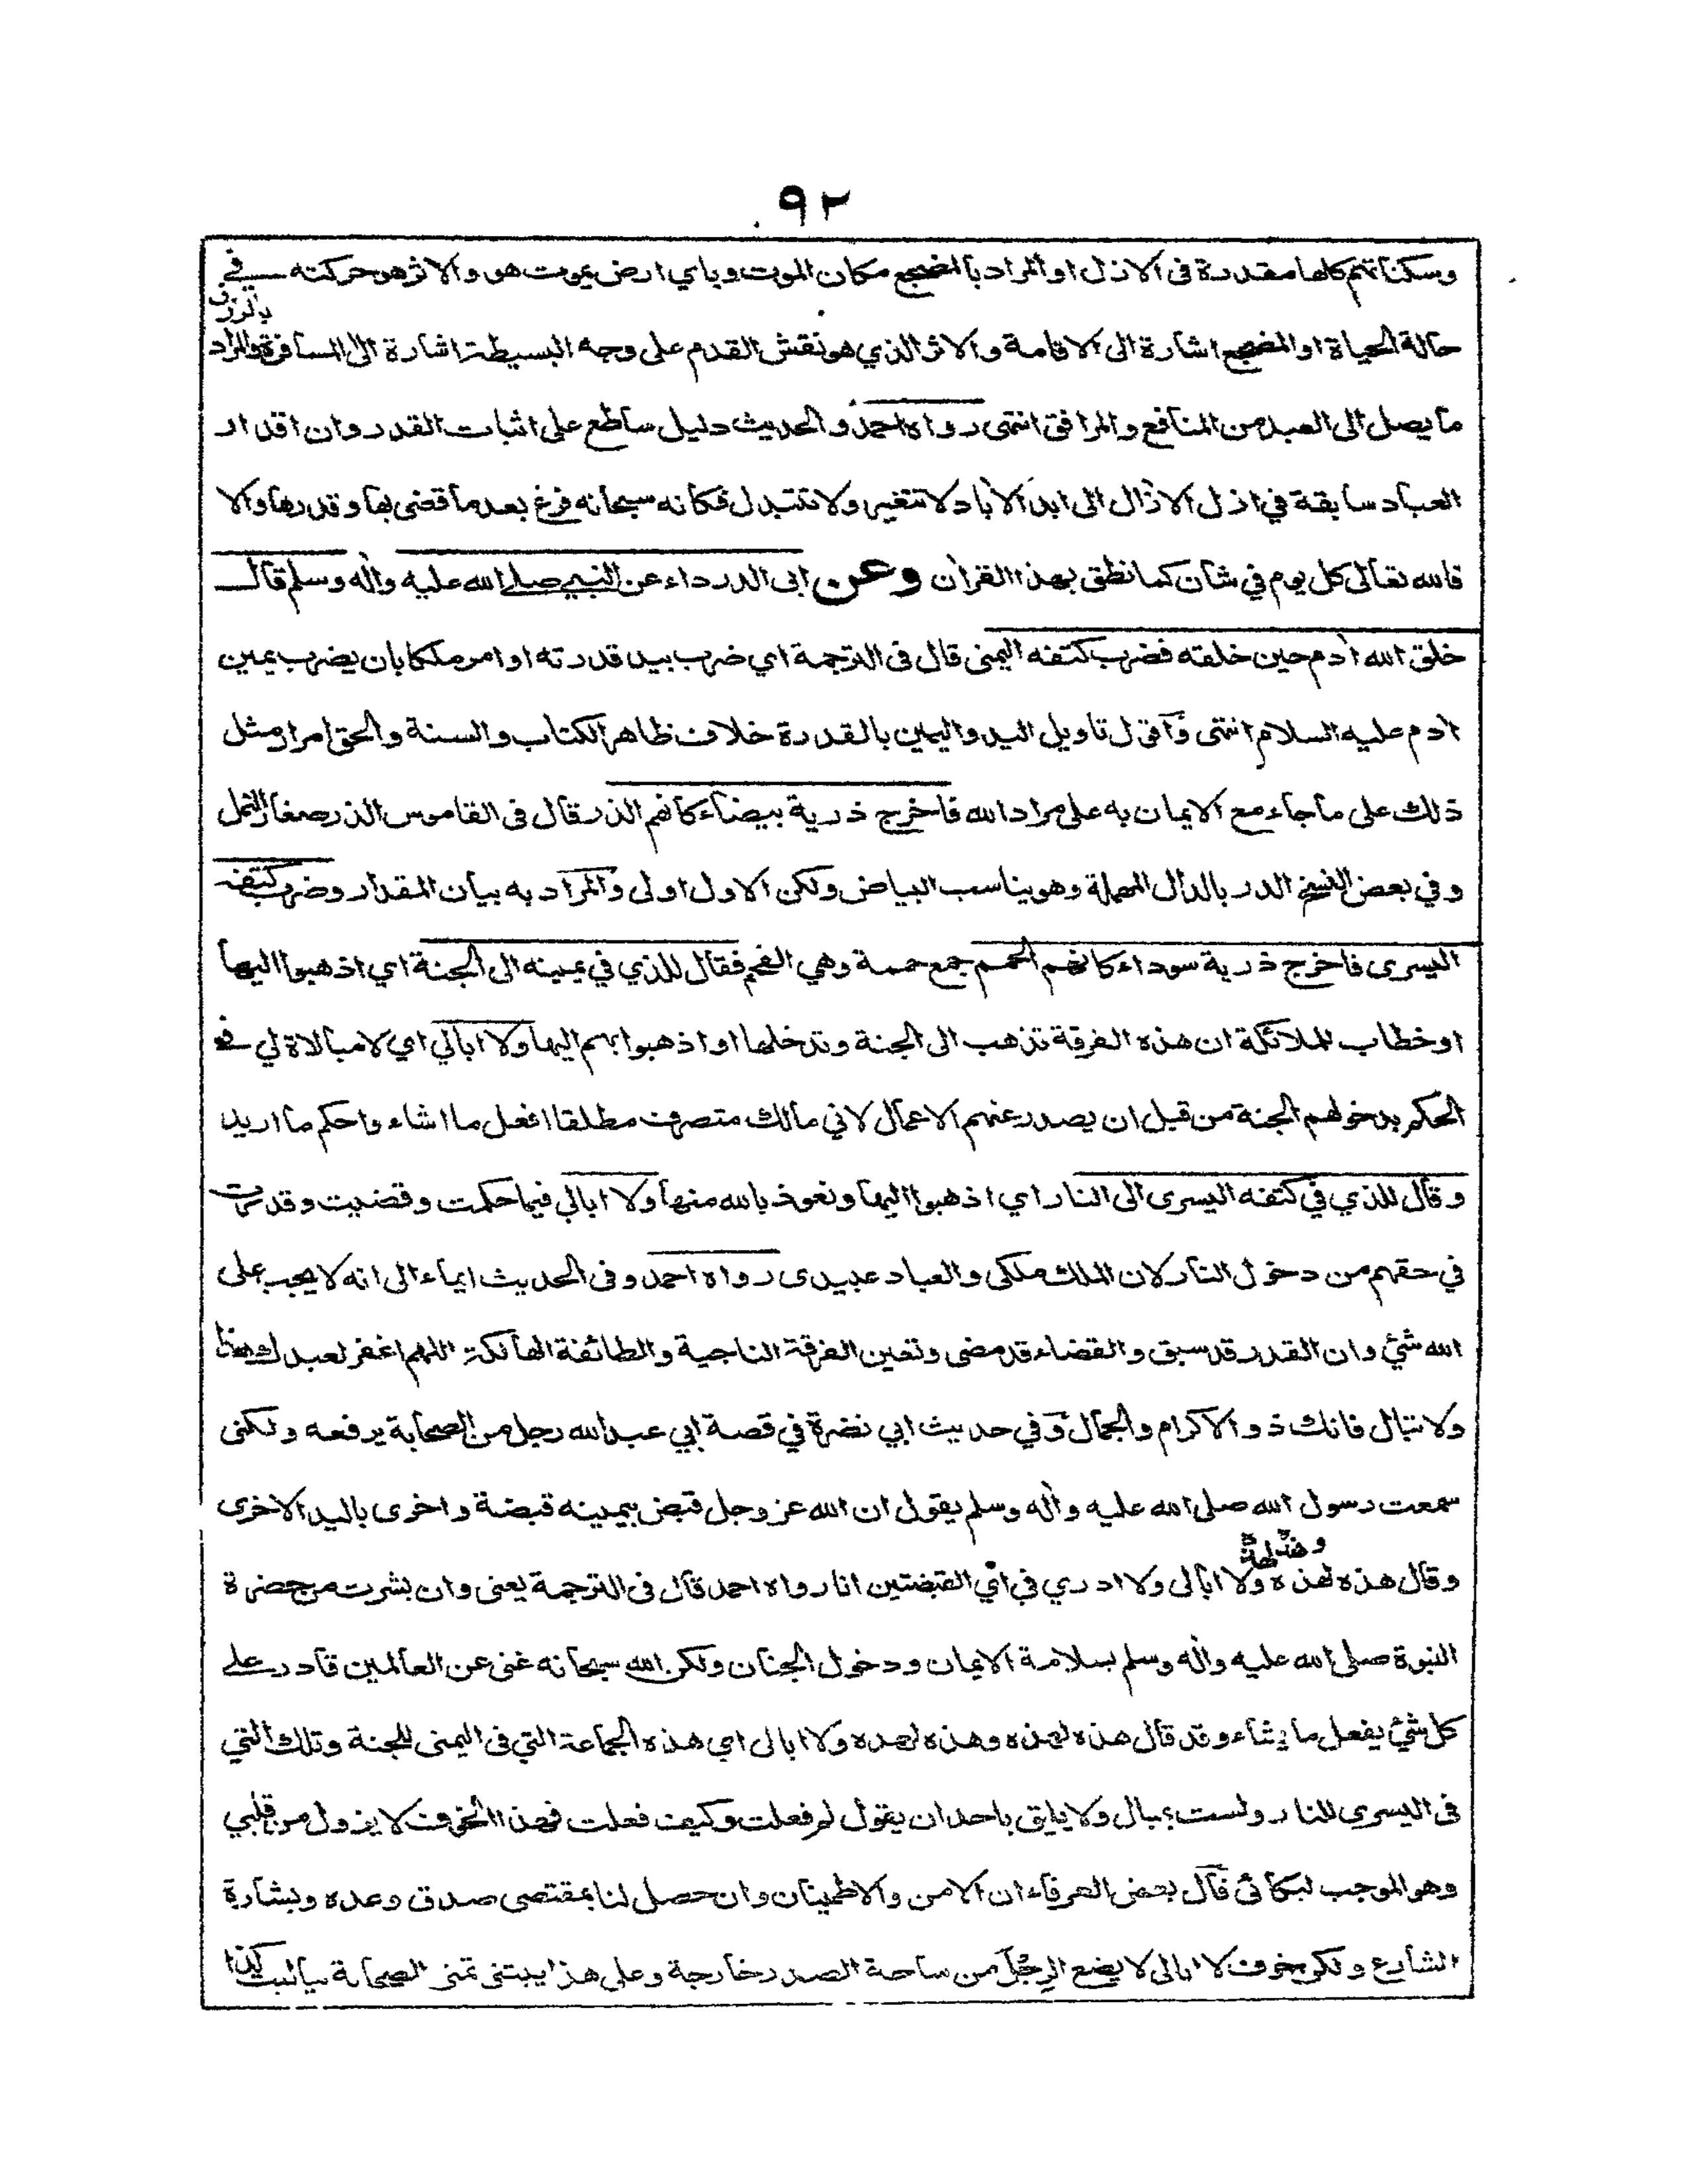 ٩٢
وسكناتهم كلها مقدرة فى الازل او المراد بالمضجع مكان الموت وباي ارض يموت هو والاثر هو حركته في
بالرزق
حالة الحياة او المضجع اشارة الى الاقامة والاثر الذي هو نقش القدم على وجه البسيطة اشارة الى المسافرة والمراد
ما يصل الى العبد من المنافع والمرافق انتهى رواه احمد والحديث دليل ساطع على اثبات القدر وان اقدار
العباد سابقة في ازل الازال الى ابد الاباد لا تتغير ولا تتبدل فكانه سبحانه فرغ بعد ما قضى بها وقدرها والا
فالله تعالى كل يوم في شان كما نطق بهذا القران وعن ابى الدرداء عن النبي صلے الله عليه واله وسلم قال
خلق الله ادم حين خلقه فضرب كتفه اليمنى قال فى الترجمة اي ضرب بيد قدرته او امر ملكا بان يضرب يمين
ادم عليه السلام انتهى واقول تاويل اليد واليمين بالقدرة خلاف ظاهر الكتاب والسنة والحق امرار مثل
ذلك على ما جاء مع الايمان به على مراد الله فاخرج ذرية بيضاء كانهم الذر قال فى القاموس الذر صغار النمل
وفي بعض النسخ الدر بالدال المهملة وهو يناسب البياض ولكن الاول اولى والمراد به بيان المقدار وضرب كتفه
اليسرى فاخرج ذرية سوداء كانهم الحمم جمع حممة وهي الفحم فقال للذي في يمينه الى الجنة اي اذهبوا اليها
او خطاب للملائكة ان هذه الفرقة تذهب الى الجنة وتدخلها او اذهبوا بهم اليها ولا ابالي اي لا مبالاة لي في
الحكم بدخولهم الجنة من قبل ان يصدر عنهم الاعمال لاني مالك متصرف مطلقا افعل ما اشاء واحكم ما اريد
وقال للذي في كتفه اليسرى الى النار اي اذهبوا اليها ونعوذ بالله منها ولا ابالي فيما حكمت وقضيت وقدرت
في حقهم من دخول النار لان الملك ملكى والعباد عبيدى رواه احمد وفى الحديث ايماء الى انه لا يجب على
الله شئ وان القدر قد سبق والقضاء قد مضى وتعين الفرقة الناجية والطائفة الهالكة اللهم اغفر لعبدك هذا
ولا تبال فانك ذو الاكرام والجمال وفي حديث ابي نضرة في قصة ابي عبدالله رجل من الصحابة يرفعه ولكنى
سمعت رسول الله صلى الله عليه واله وسلم يقول ان الله عز وجل قبض بيمينه قبضة واخرى باليد الاخرى
وهذه لهذه
وقال هذه لهذه ولا ابالى ولا ادري في اي القبضتين انا رواه احمد قال فى الترجمة يعنى وان بشرت من حضرة
النبوة صلى الله عليه واله وسلم بسلامة الايمان ودخول الجنان ولكن الله سبحانه غنى عن العالمين قادر على
كل شئ يفعل ما يشاء وقد قال هذه لهذه وهذه لهذه ولا ابالى اي هذه الجماعة التي فى اليمنى للجنة وتلك التي
فى اليسرى للنار ولست بمبال ولا يليق باحد ان يقول لم فعلت وكيف فعلت فهذا الخوف لا يزول من قلبي
وهو الموجب لبكائى قال بعض العرفاء ان الامن والاطمينان وان حصل لنا بمقتضى صدق وعده وبشارة
الشارع ولكن خوف لا ابالى لا يضع الرجل من ساحة الصدر خارجة وعلى هذا يبتنى تمنى الصحابة يا ليت كذا